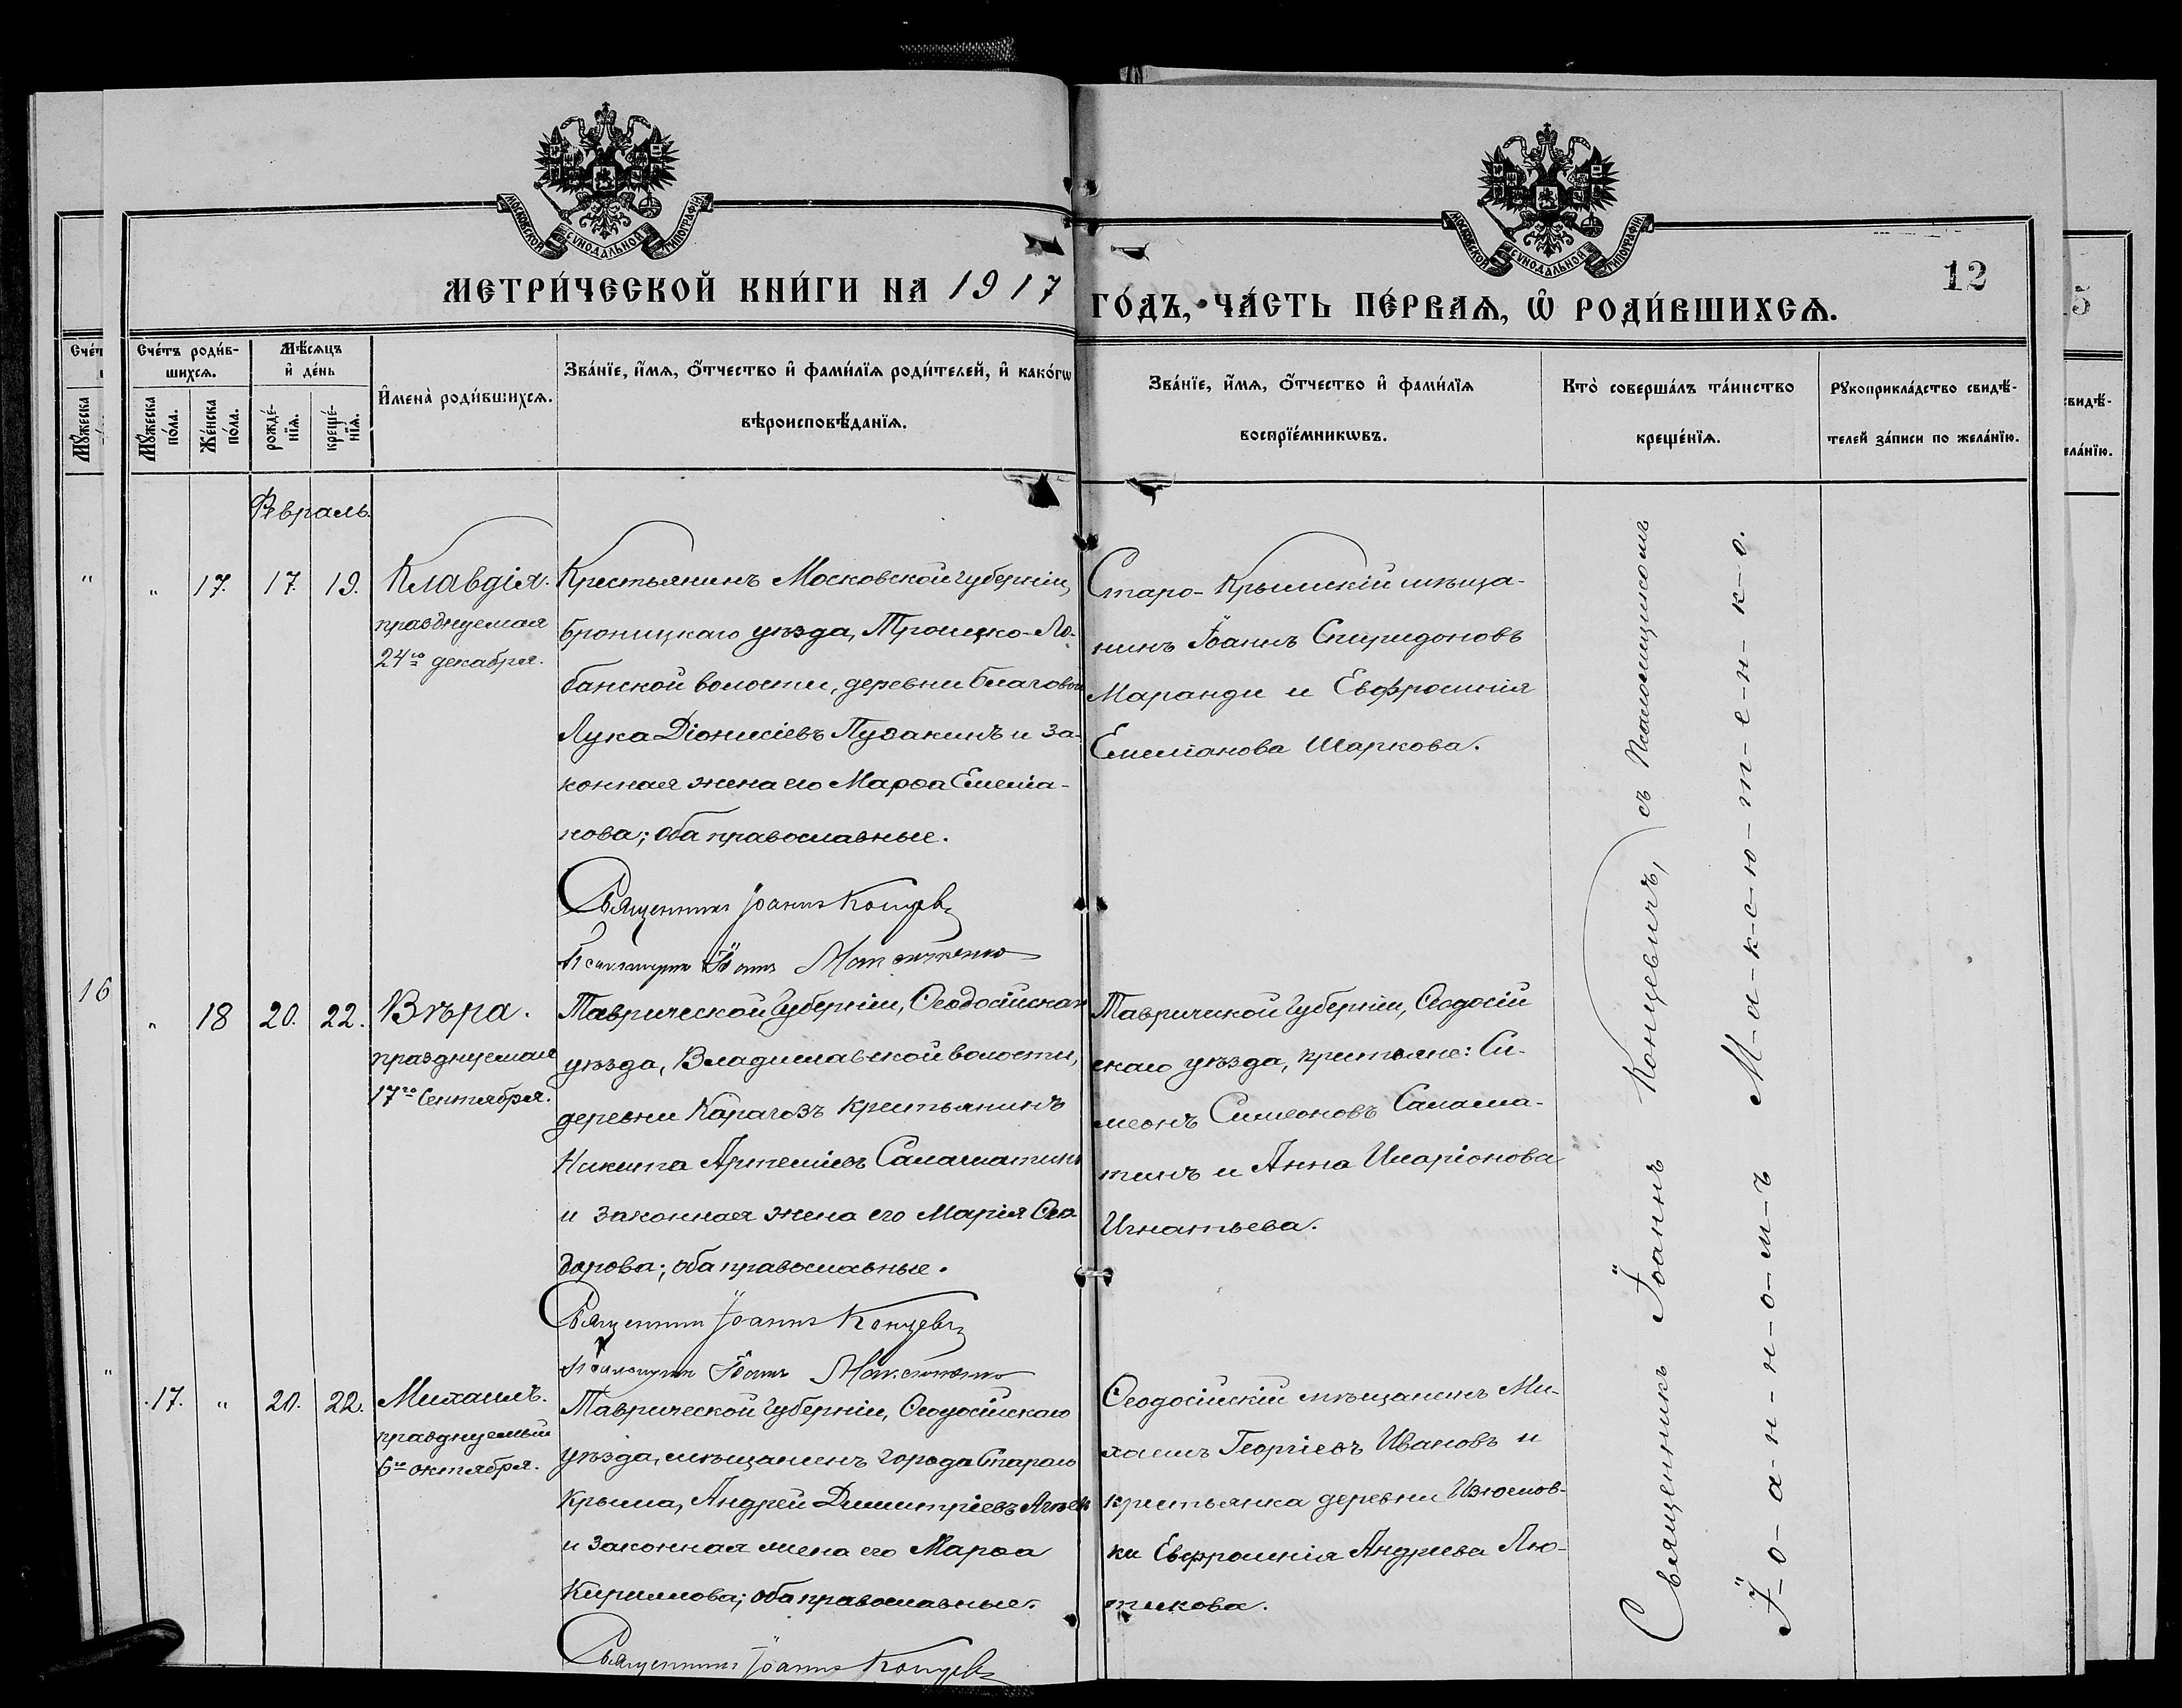 МОСКОВСКОЙ СѴНОДАЛЬНОЙ ТИПОГРАФІИ
МОСКОВСКОЙ СѴНОДАЛЬНОЙ ТИПОГРАФІИ
МЕТРИ́ЧЕСКОЙ КНИ́ГИ НА 1917
ГО́ДЪ, ЧА́СТЬ ПЕ́РВАѦ, Ѽ РОДИ́ВШИХСѦ.
12
Сче́тъ роди́в-
шихсѧ.
Мꙋ́жеска
по́ла.
Же́нска
по́ла.
Мѣ́сѧцъ
и҆ де́нь
рожде́-
нїѧ.
креще́-
нїѧ.
И҆мена̀ роди́вшихсѧ.
Зва́нїе, и҆́мѧ, ѻ҆́тчество и҆ фами́лїѧ роди́телей, и҆ како́гѡ
вѣроисповѣ́данїѧ.
Зва́нїе, и҆́мѧ, ѻ҆́тчество и҆ фами́лїѧ
воспрїе́мникѡвъ.
Кто̀ соверша́лъ та́инство
креще́нїѧ.
Рꙋкоприкла́дство свидѣ́-
телей за́писи по жела́нїю.
Февраль.
" 17. 17. 19.
Клавдія.
празднуемая
24го декабря.
Крестьянинъ Московской губерніи,
Броницкаго уѣзда, Троицко-Ло-
банской волости, деревни
Лука Діонисіевъ и за-
конная жена его Марѳа Емеліа-
нова; оба православные.
Священникъ Іоаннъ Концевичъ
Псаломщикъ Іоаннъ Максютенко
Старо-Крымскій мѣща-
нинъ Іоаннъ Спиридоновъ
Маранди и Евфросинія
Емеліанова Шаркова.
" 18 20. 22.
Вѣра.
празднуемая
17го Сентября.
Таврической Губерніи, Ѳеодосійскаго
уѣзда, Владиславской волости,
деревни Карагозъ крестьянинъ
Никита Артеміевъ Саламатинъ
и законная жена его Марія Ѳео
дорова; оба православные.
Священникъ Іоаннъ Концевичъ
Псаломщикъ Іоаннъ Максютенко
Таврической Губерніи, Ѳеодосій
скаго уѣзда, крестьяне: Си-
меонъ Симеоновъ Салама-
тинъ и Анна Иларіонова
Игнатьева.
17. " 20. 22.
Михаилъ.
празднуемый
6го октября.
Таврической Губерніи, Ѳеодосійскаго
уѣзда, мѣщанинъ города Стараго
Крыма, Андрей Димитріевъ
и законная жена его Марѳа
Кириллова; оба православные.
Священникъ Іоаннъ Концевичъ
Ѳеодосійскій мѣщанинъ Ми-
хаилъ Георгіевъ Ивановъ и
крестьянка деревни Изюмов-
ки Евфросинія Андреева Лю-
тикова.
Священникъ Іоаннъ Концевичъ, съ Псаломщикомъ
І-о-а-н-н-о-м-ъ М-а-к-с-ю-т-е-н-к-о.
16